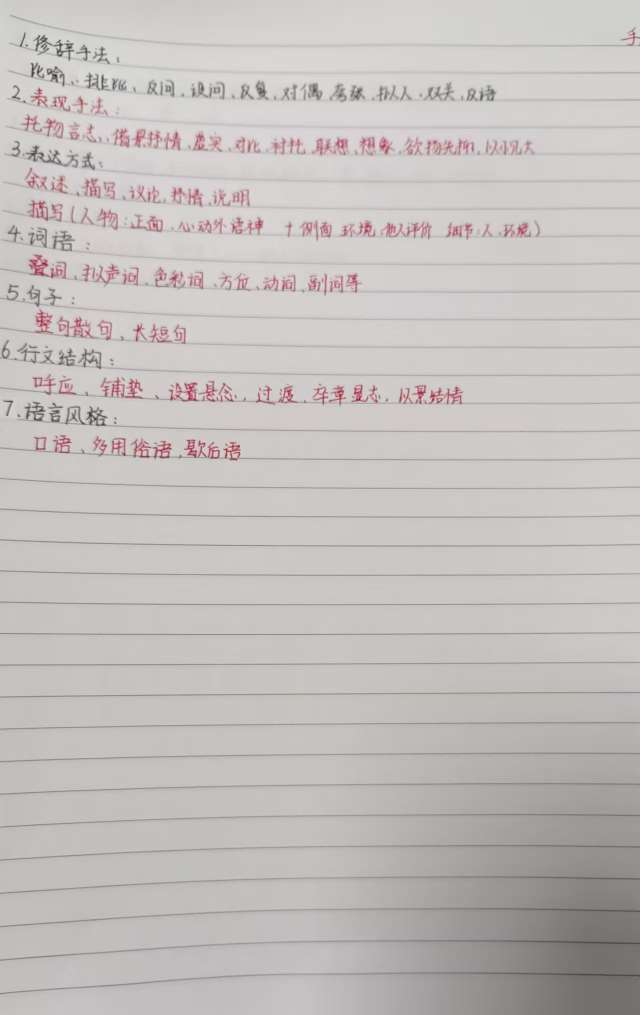 手
1.修辞手法:
比喻、排比、反问、设问、反复、对偶、夸张、拟人、双关、反语
2.表现手法:
托物言志、借景抒情、虚实、对比、衬托、联想、想象、欲扬先抑、以小见大
3.表达方式:
叙述、描写、议论、抒情、说明
描写(人物:正面、心动外语神 十 侧面 环境,他人评价 细节:人、环境)
4.词语:
叠词、拟声词、色彩词、方位、动词、副词等
5.句子:
整句散句、长短句
6.行文结构:
呼应、铺垫、设置悬念、过渡、卒章显志、以景结情
7.语言风格:
口语、多用俗语、歇后语